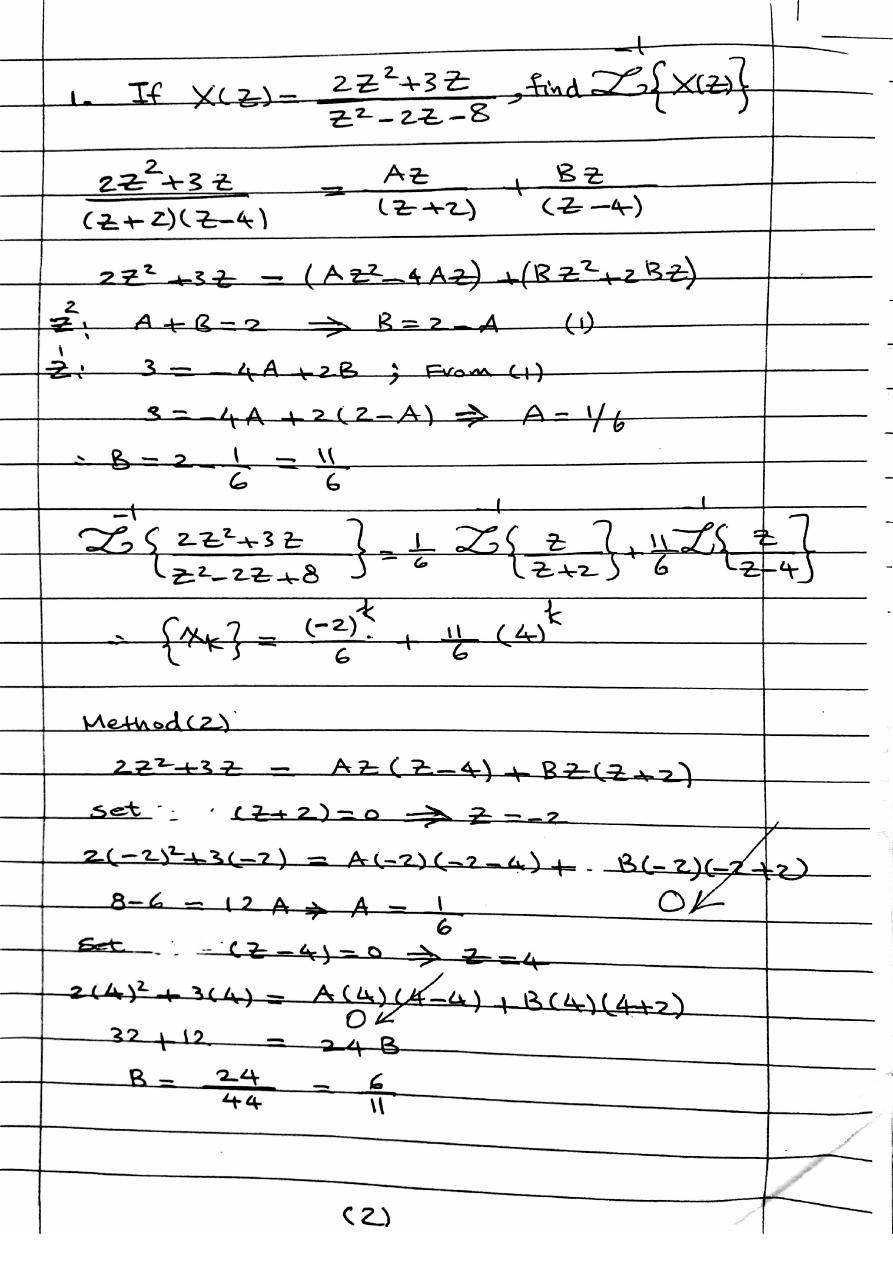 1. If X(Z) = (2Z²+3Z)/(Z²-2Z-8), find Z⁻¹{X(Z)}
(2Z²+3Z)/((Z+2)(Z-4)) = AZ/(Z+2) + BZ/(Z-4)
2Z²+3Z = (AZ²-4AZ)+(BZ²+2BZ)
Z²: A+B=2 ⇒ B=2-A (1)
Z¹: 3 = -4A+2B ; From (1)
3 = -4A+2(2-A) ⇒ A = 1/6
∴ B = 2 - 1/6 = 11/6
Z⁻¹{(2Z²+3Z)/(Z²-2Z+8)} = 1/6 Z⁻¹{Z/(Z+2)} + 11/6 Z⁻¹{Z/(Z-4)}
∴ {Xk} = (-2)ᵏ/6 + 11/6 (4)ᵏ
Method(2)
2Z²+3Z = AZ(Z-4)+BZ(Z+2)
set (Z+2)=0 ⇒ Z=-2
2(-2)²+3(-2) = A(-2)(-2-4)+ B(-2)(-2+2) 0
8-6 = 12A ⇒ A = 1/6
set (Z-4)=0 ⇒ Z=4
2(4)²+3(4) = A(4)(4-4)+B(4)(4+2)
0
32+12 = 24B
B = 24/44 = 6/11
(2)